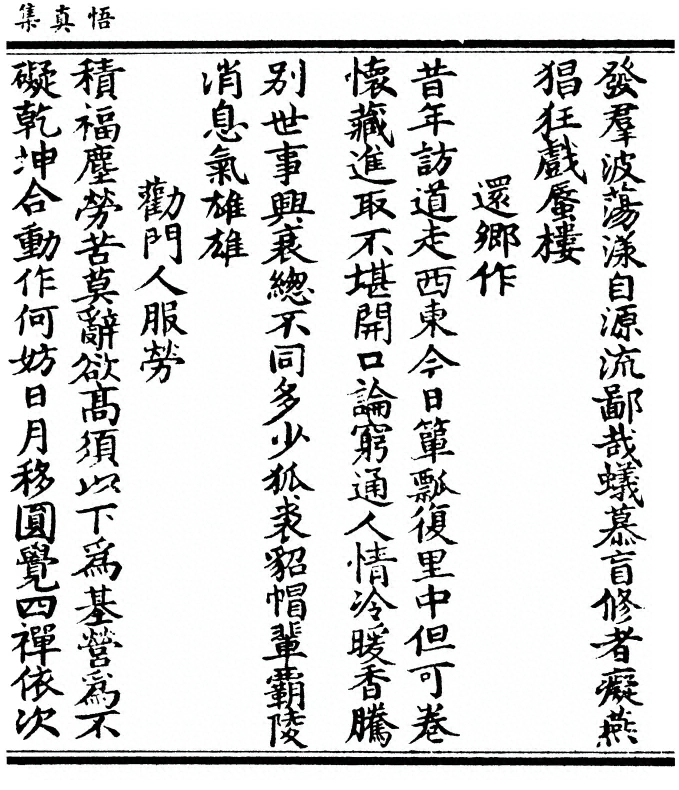 悟真集
發羣波蕩漾自源流鄙哉蟻慕盲修者癡燕
猖狂戲蜃樓
還鄉作
昔年訪道走西東今日簞瓢復里中但可卷
懷藏進取不堪開口論窮通人情冷暖香騰
別世事興衰總不同多少狐裘貂帽輩霸陵
消息氣雄雄
勸門人服勞
積福塵勞苦莫辭欲高須以下為基營為不
礙乾坤合動作何妨日月移圓覺四禪依次